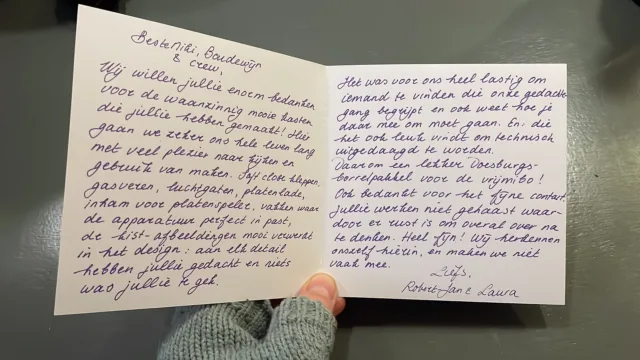 Beste Niki, Boudewijn
& crew,
Wij willen jullie enorm bedanken
voor de waanzinnig mooie kasten
die jullie hebben gemaakt! Hier
gaan we zeker ons hele leven lang
met veel plezier naar kijken en
gebruik van maken. Soft close kleppen,
gasveren, luchtgaten, platenlade,
inham voor platenspeler, vakken waar
de apparatuur perfect in past,
de kist-afbeeldingen mooi verwerkt
in het design: aan elk detail
hebben jullie gedacht en niets
was jullie te gek.
Het was voor ons heel lastig om
iemand te vinden die onze gedachte-
gang begrijpt en ook weet hoe je
daar mee om moet gaan. En: die
het ook leuk vindt om technisch
uitgedaagd te worden.
Daarom een lekker Doesburgs-
borrelpakket voor de vrijmibo!
Ook bedankt voor het fijne contact.
Jullie werken niet gehaast waar-
door er rust is om overal over na
te denken. Heel fijn! Wij herkennen
onszelf hierin, en maken we niet
vaak mee.
Liefs,
Robert-Jan & Laura